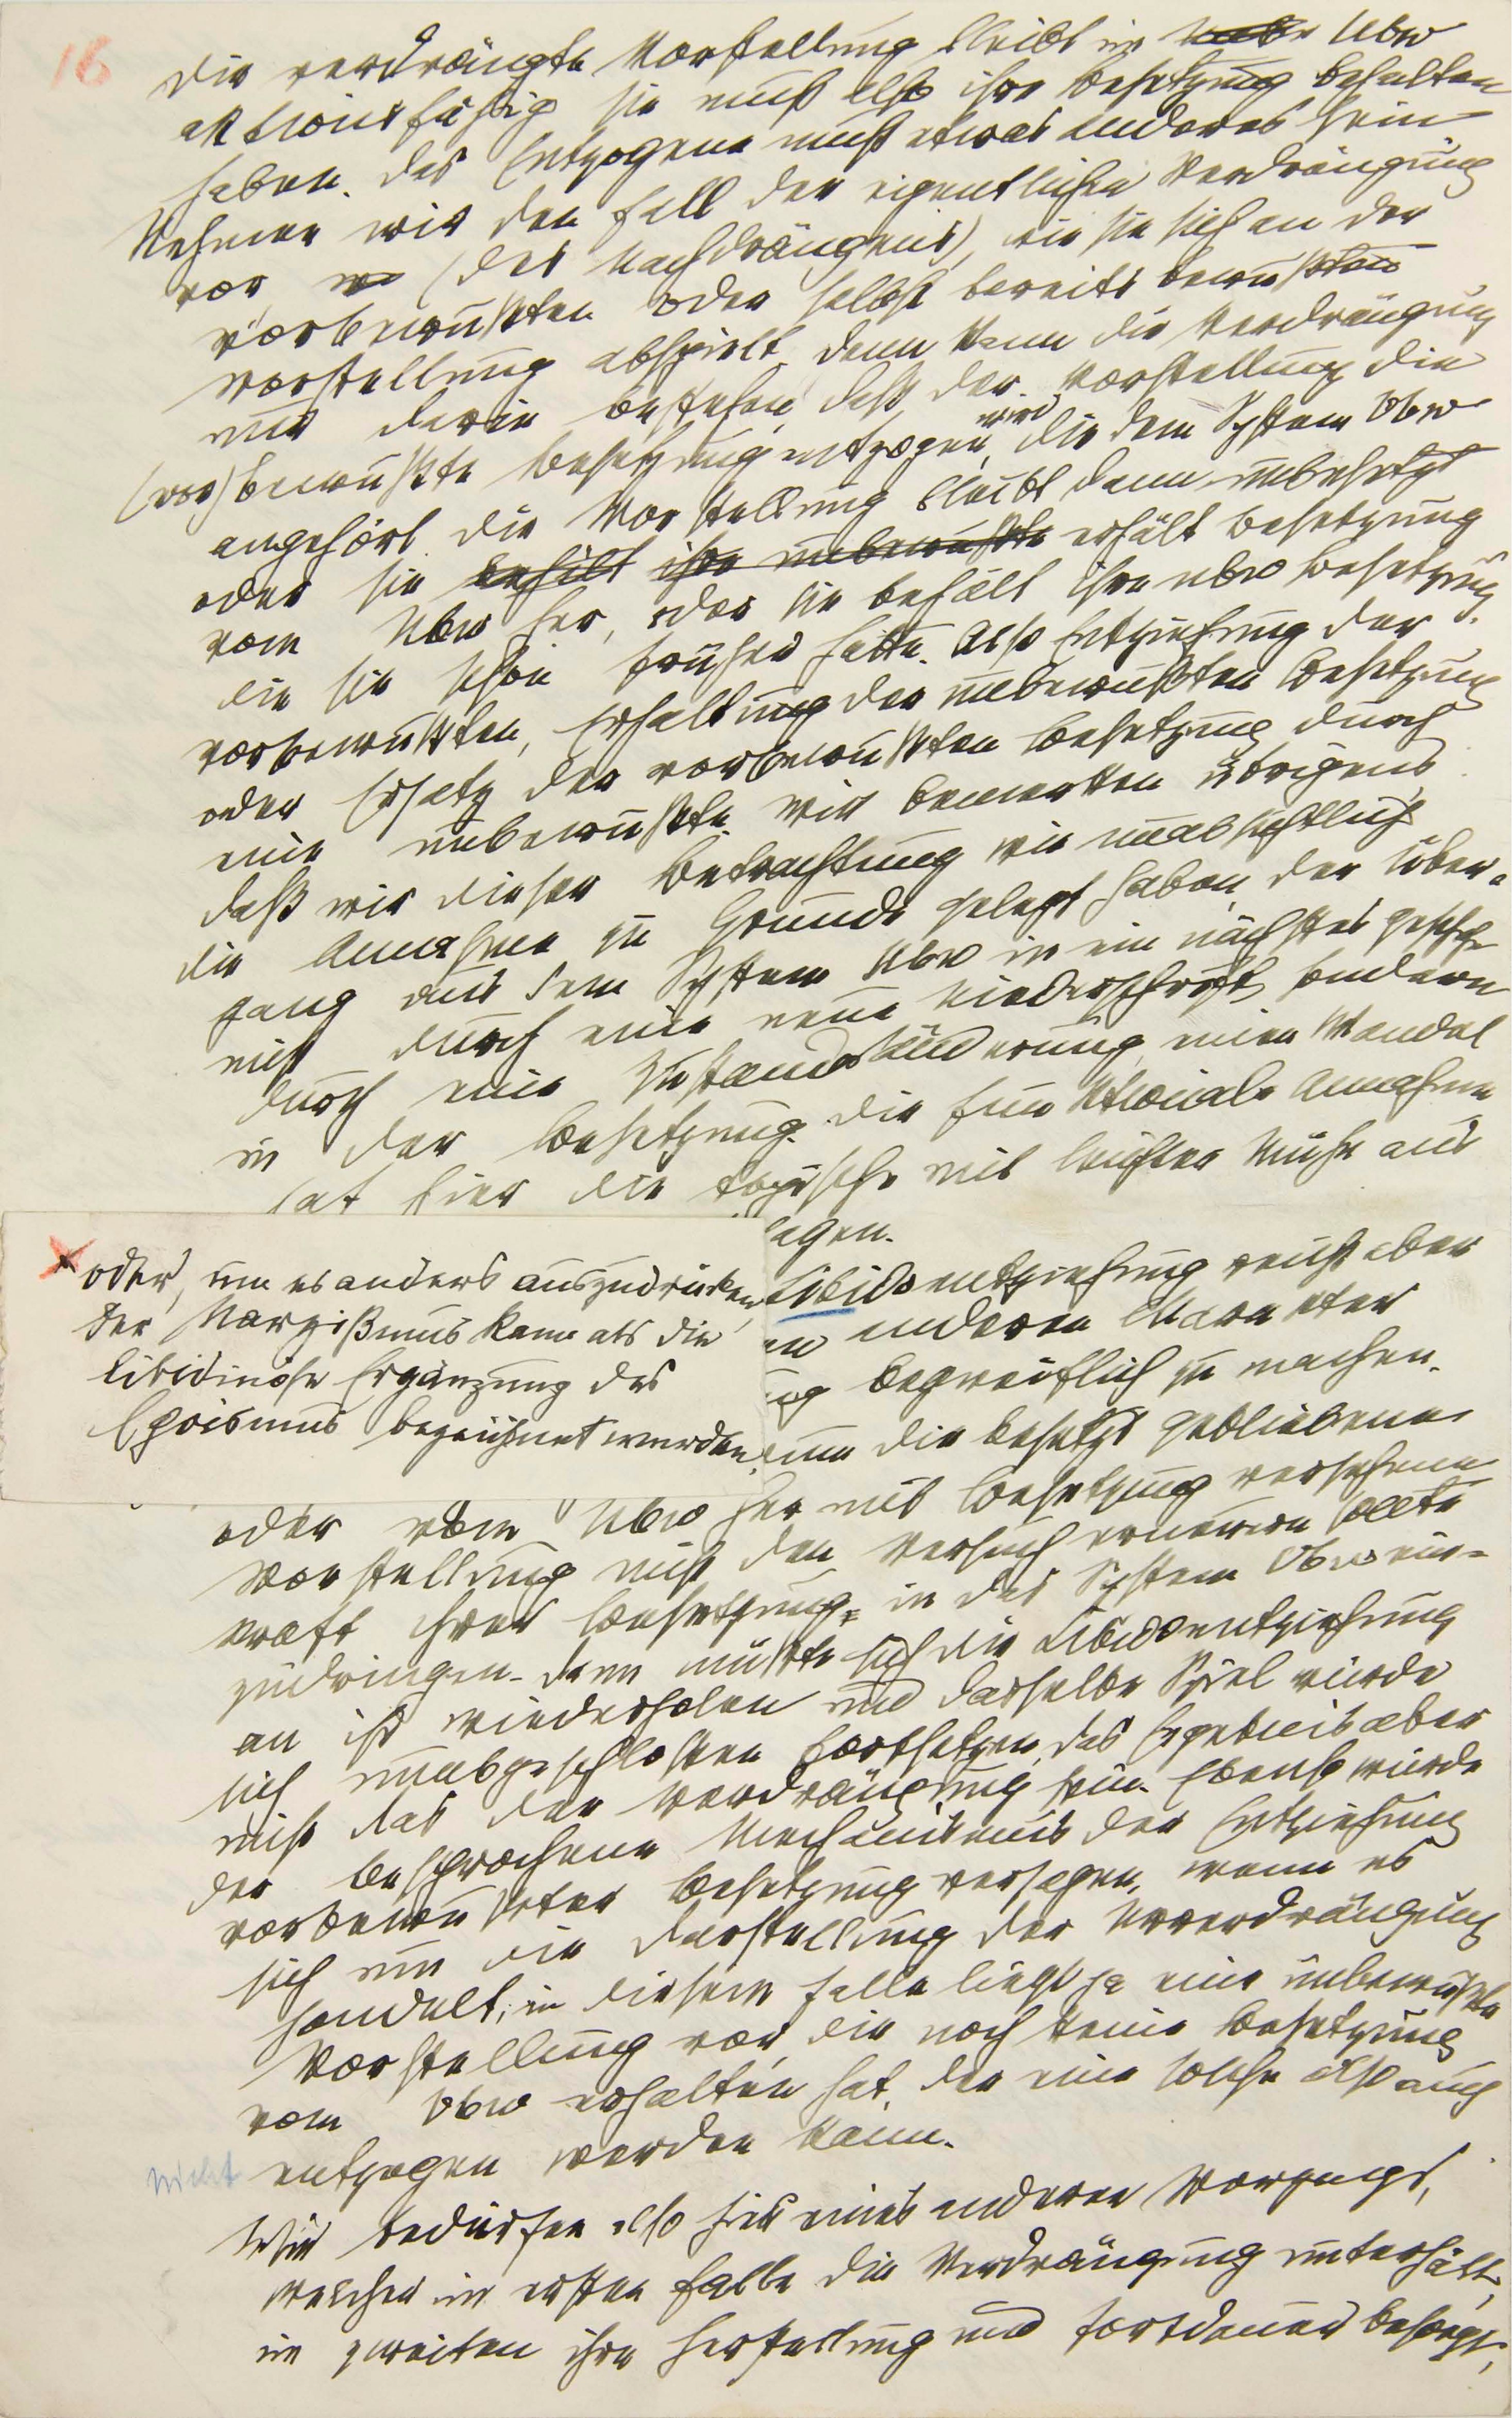 16
die verdrängte Vorstellung bleibt im Ubw
aktionsfähig sie muß also ihre Besetzung behalten
haben. Das Entzogene muß etwas anderes sein
Nehmen wir den Fall der eigentlichen Verdrängung
vor (des Nachdrängens), wie sie sich an der
vorbewußten oder selbst bereits bewußten
Vorstellung abspielt, dann kann die Verdrängung
nur darin bestehen, daß der Vorstellung die
(vor)bewußte Besetzung entzogen wird, die dem System Vbw
angehört. Die Vorstellung bleibt dann unbesetzt
oder sie behält ihre unbewußte erhält Besetzung
vom Ubw her, oder sie behält ihre ubw Besetzung,
die sie schon früher hatte. Also Entziehung der
vorbewußten, Erhaltung der unbewußten Besetzung
oder Ersatz der vorbewußten Besetzung durch
eine unbewußte. Wir bemerken übrigens
daß wir dieser Betrachtung wie unabsichtlich
die Annahme zu Grunde gelegt haben, der Über-
gang aus dem System Ubw in ein nächstes geschehe
nicht durch eine neue Niederschrift, sondern
durch eine Zustandsänderung, einen Wandel
in der Besetzung. Die funktionale Annahme
hat hier die topische mit leichter Mühe aus
agen.
Libidoentziehung reicht aber
en anderen Charakter
ng begreiflich zu machen.
um die besetzt gebliebene
* oder, um es anders auszudrücken,
der Narzißmus kann als die
libidinöse Ergänzung des
Egoismus bezeichnet werden.
oder vom Ubw her mit Besetzung versehene
Vorstellung nicht den Versuch erneuern sollte
kraft ihrer Besetzung, in das System Vbw ein-
zudringen. Dann müßte sich die Libidoentziehung
an ihr wiederholen und dasselbe Spiel würde
sich unabgeschlossen fortsetzen, das Ergebnis aber
nicht das der Verdrängung sein. Ebenso würde
der besprochene Mechanismus der Entziehung
vorbewußter Besetzung versagen, wenn es
sich um die Darstellung der Urverdrängung
handelt; in diesem Falle liegt ja eine unbewußte
Vorstellung vor, die noch keine Besetzung
vom Vbw erhalten hat, der eine solche also auch
nicht entzogen werden kann.
Wir bedürfen also hier eines anderen Vorgangs,
welcher im ersten Falle die Verdrängung unterhält,
im zweiten ihre Herstellung und Fortdauer besorgt,